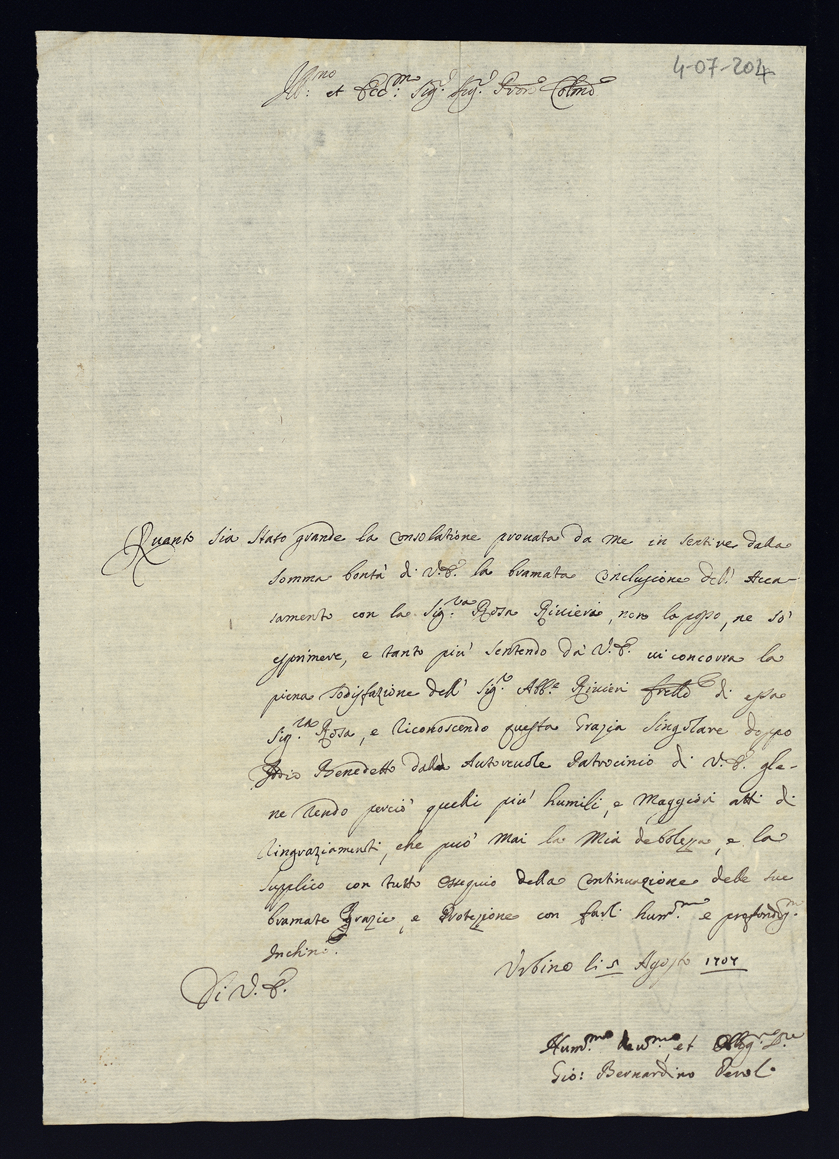 4-07-204
Ill:mo et Ecc:mo Sig.r Sig.r Pron Colmo
Quanto sia stato grande la consolatione prouata da me in sentire dalla
somma bontà di V.E. la bramata conclusione del' Acca-
samento con la Sig.ra Rosa Riuieri, non la posso, ne sò
esprimere, e tanto più sentendo da V.E. ui concorra la
piena sodisfazione dell' Sig.r Abb.e Riuieri frello di essa
Sig.ra Rosa, e riconoscendo questa Grazia singolare doppo
Iddio Benedetto dalla Autoreuole Patrocinio di V.E. gle-
ne rendo perciò quelli più humili, e Maggiori atti di
ringraziamenti, che può mai la Mia debolezza, e la
supplico con tutto ossequio della continuazione delle sue
bramate Grazie, e Protezione con farli hum.ma e profondis.ma
Inchin:
Vrbino li 5 Agosto 1707
Di V.E.
Hum.mo deu.mo, et Obbg.mo S.re
Gio: Bernardino